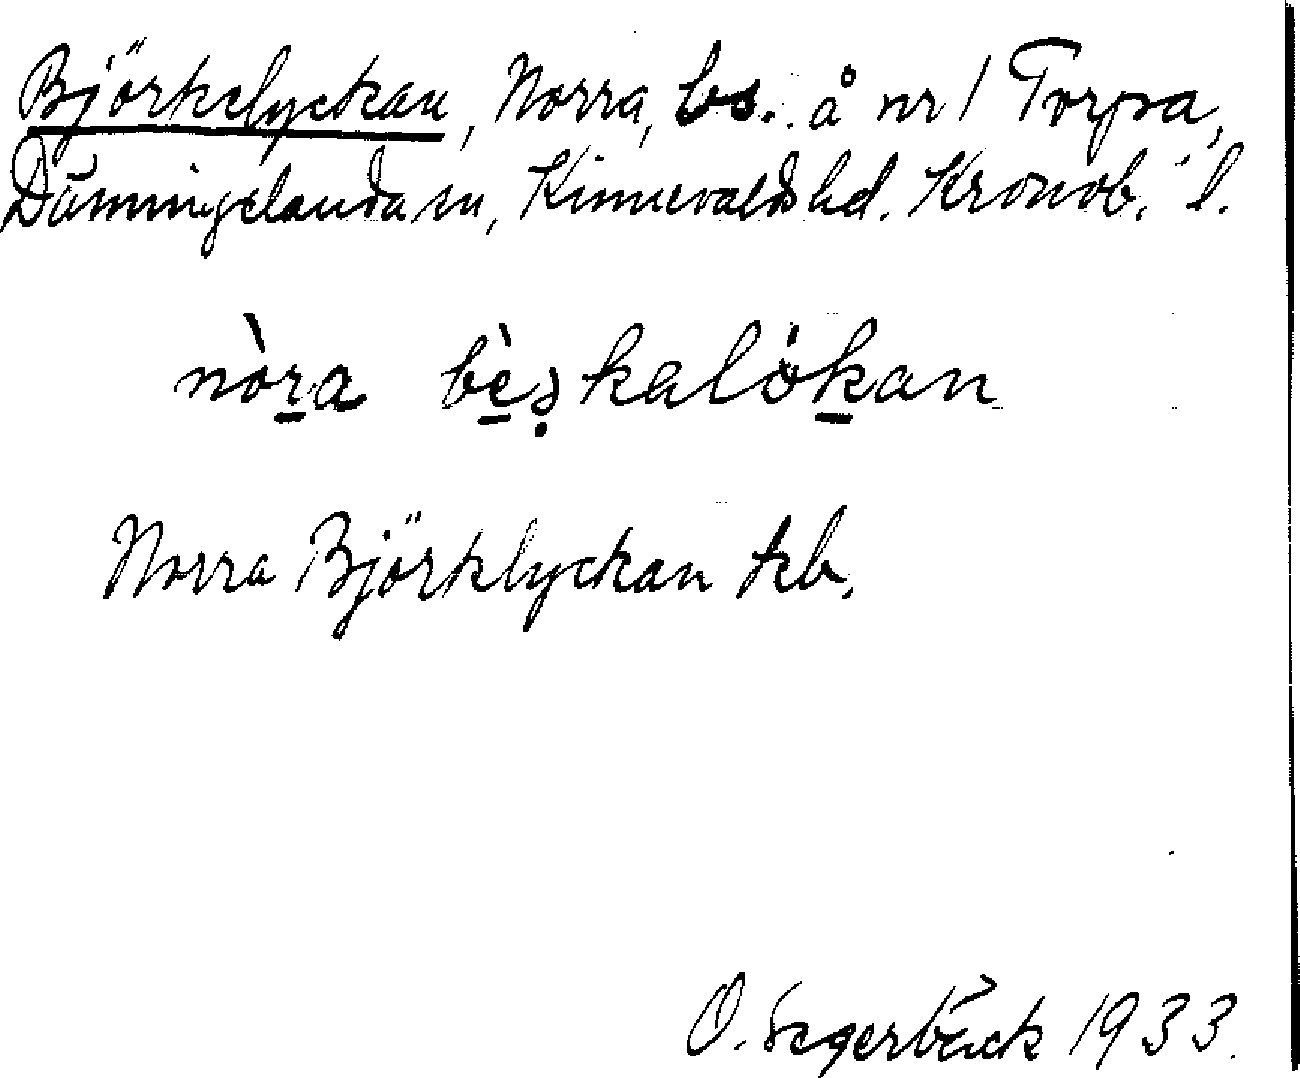 Björkelyckan, Norra, bs. å nr 1 Torpa,
Dänningelanda sn, Kinnevalds hd. Kronob. l.
nòra bèṣkalökan
Norra Björklyckan kb.
O. Segerbäck 1933.